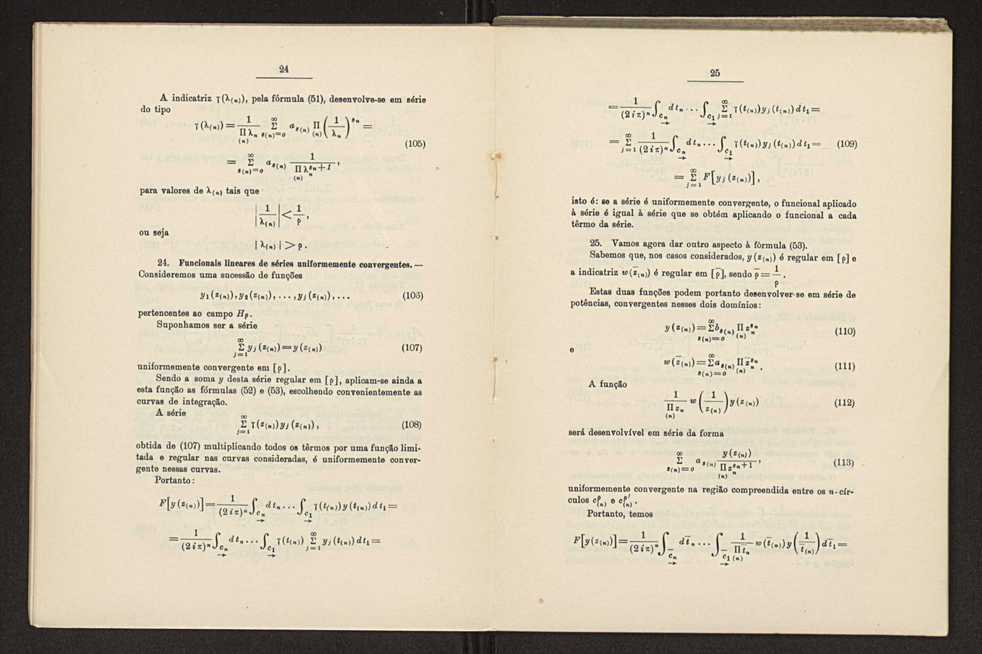 24
A indicatriz γ(λ₍ₙ₎), pela fórmula (51), desenvolve-se em série
do tipo
γ(λ₍ₙ₎) = 1/(Π₍ₙ₎ λₙ) Σ_{s₍ₙ₎=0}^{∞} a_{s₍ₙ₎} Π₍ₙ₎ (1/λₙ)^{sₙ} =
= Σ_{s₍ₙ₎=0}^{∞} a_{s₍ₙ₎} 1/(Π₍ₙ₎ λₙ^{sₙ+1}), (105)
para valores de λ₍ₙ₎ tais que
|1/λ₍ₙ₎| < 1/ρ,
ou seja
|λ₍ₙ₎| > ρ.
24. Funcionais lineares de séries uniformemente convergentes. —
Consideremos uma sucessão de funções
y₁(z₍ₙ₎), y₂(z₍ₙ₎), ..., yⱼ(z₍ₙ₎), ... (106)
pertencentes ao campo Hρ.
Suponhamos ser a série
Σ_{j=1}^{∞} yⱼ(z₍ₙ₎) = y(z₍ₙ₎) (107)
uniformemente convergente em [ρ].
Sendo a soma y desta série regular em [ρ], aplicam-se ainda a
esta função as fórmulas (52) e (53), escolhendo convenientemente as
curvas de integração.
A série
Σ_{j=1}^{∞} γ(z₍ₙ₎) yⱼ(z₍ₙ₎), (108)
obtida de (107) multiplicando todos os têrmos por uma função limi-
tada e regular nas curvas consideradas, é uniformemente conver-
gente nessas curvas.
Portanto:
F[y(z₍ₙ₎)] = 1/(2iπ)ⁿ ∫_{cₙ} dtₙ ... ∫_{c₁} γ(t₍ₙ₎) y(t₍ₙ₎) dt₁ =
= 1/(2iπ)ⁿ ∫_{cₙ} dtₙ ... ∫_{c₁} γ(t₍ₙ₎) Σ_{j=1}^{∞} yⱼ(t₍ₙ₎) dt₁ =
25
= 1/(2iπ)ⁿ ∫_{cₙ} dtₙ ... ∫_{c₁} Σ_{j=1}^{∞} γ(t₍ₙ₎) yⱼ(t₍ₙ₎) dt₁ =
= Σ_{j=1}^{∞} 1/(2iπ)ⁿ ∫_{cₙ} dtₙ ... ∫_{c₁} γ(t₍ₙ₎) yⱼ(t₍ₙ₎) dt₁ = (109)
= Σ_{j=1}^{∞} F[yⱼ(z₍ₙ₎)],
isto é: se a série é uniformemente convergente, o funcional aplicado
à série é igual à série que se obtém aplicando o funcional a cada
têrmo da série.
25. Vamos agora dar outro aspecto à fórmula (53).
Sabemos que, nos casos considerados, y(z₍ₙ₎) é regular em [ρ] e
a indicatriz w(z̄₍ₙ₎) é regular em [ρ̄], sendo ρ̄ = 1/ρ.
Estas duas funções podem portanto desenvolver-se em série de
potências, convergentes nesses dois domínios:
y(z₍ₙ₎) = Σ_{s₍ₙ₎=0}^{∞} b_{s₍ₙ₎} Π₍ₙ₎ zₙ^{sₙ} (110)
e
w(z̄₍ₙ₎) = Σ_{s₍ₙ₎=0}^{∞} a_{s₍ₙ₎} Π₍ₙ₎ z̄ₙ^{sₙ}. (111)
A função
1/(Π₍ₙ₎ zₙ) w(1/z₍ₙ₎) y(z₍ₙ₎) (112)
será desenvolvível em série da forma
Σ_{s₍ₙ₎=0}^{∞} a_{s₍ₙ₎} y(z₍ₙ₎)/(Π₍ₙ₎ zₙ^{sₙ+1}), (113)
uniformemente convergente na região compreendida entre os n-cír-
culos c₍ₙ₎^ρ e c₍ₙ₎^ρ′.
Portanto, temos
F[y(z₍ₙ₎)] = 1/(2iπ)ⁿ ∫_{c̄ₙ} dt̄ₙ ... ∫_{c̄₁} 1/(Π₍ₙ₎ t̄ₙ) w(t̄₍ₙ₎) y(1/t̄₍ₙ₎) dt̄₁ =